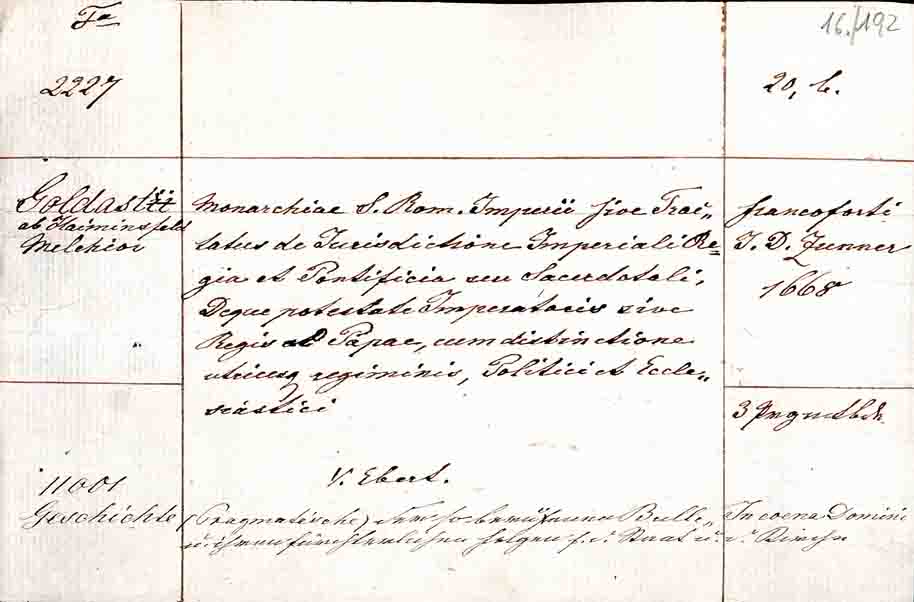 Fa
16./192
2227
20, b.
Goldastii
ab Haiminsfeld
Melchior
Monarchiae S. Rom. Imperii sive Trac„
tatus de Jurisdictione Imperiali Re=
gia et Pontificia seu Sacerdotali,
Deque potestate Imperatoris sive
Regis ac Papae, cum distinctione
utriusq regiminis, Politici et Eccle„
siastici
francoforti
J. D. Zunner
1668
3
V. Ebert.
11001
Geschichte
(Pragmatische) der so berüfenen Bulle„
In coena Domini
u. ihren fürchterlichen folgen f. d. Staat u.
d. Kirche